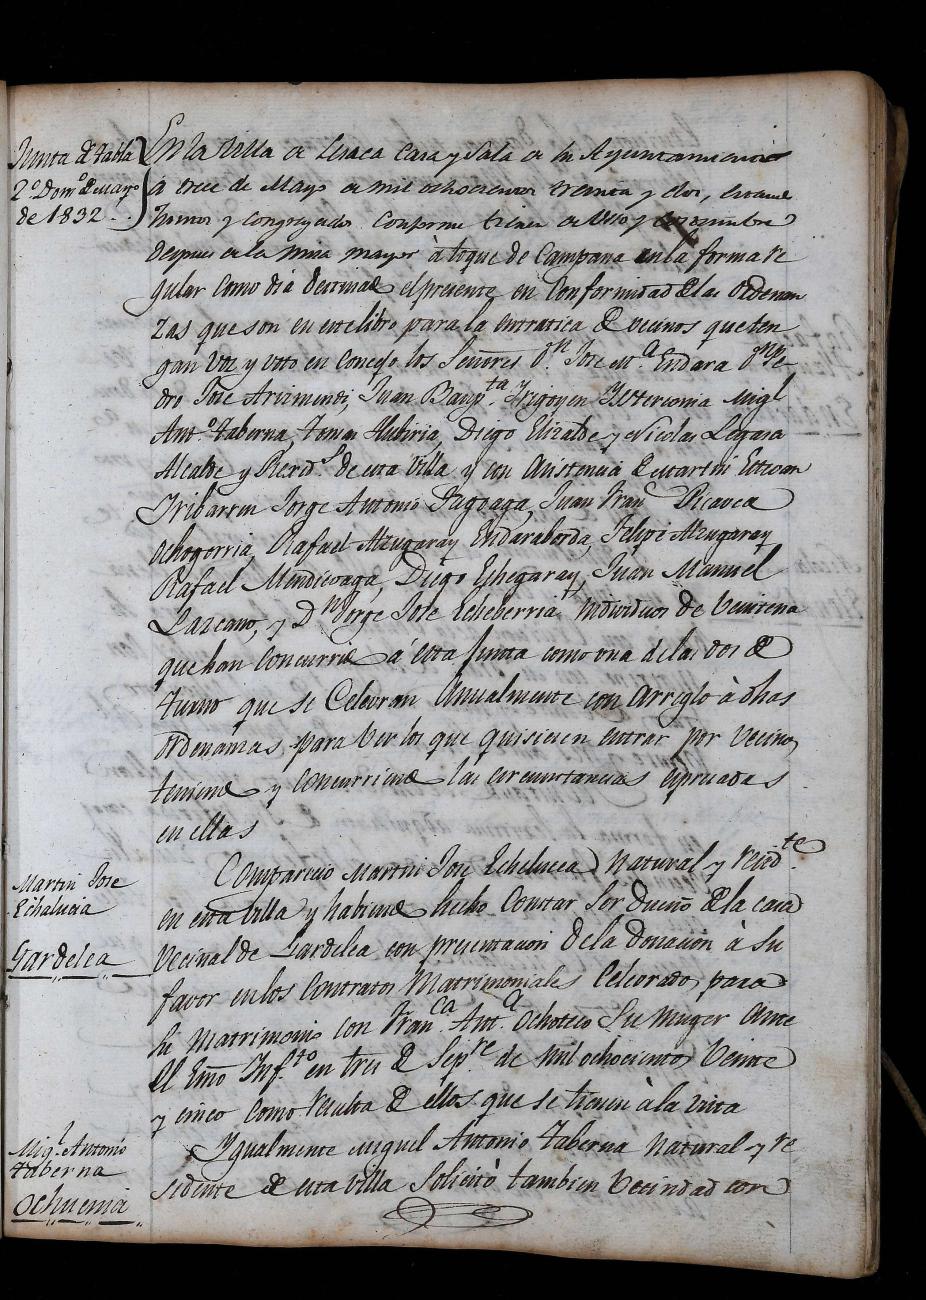 Junta de tabla
2.º Dom.º de Mayo
de 1832.
En la Villa de Lesaca Casa y Sala de su Ayuntamiento
á trece de Mayo de mil ochocientos treinta y dos, estando
juntos y congregados conforme tienen de Uso y costumbre
despues de la misa mayor à toque de Campana en la forma re
gular como dia destinado el presente en Conformidad de las Ordenan
zas que son en este libro para la entratica de vecinos que ten
gan Voz y voto en Concejo los Señores D.n Jose M.a Endara D.n Pe
dro Jose Arizmendi, Juan Baup.ta Yrigoyen Miguel
Ant.º Taberna, Tomas Hubiria, Diego Elizalde y Nicolas Legasa
Alcalde y Rexid.s de esta Villa y con Asistencia de Martin Esteban
Iribarren Jorge Antonio Fagoaga, Juan Fran.co Picavea
Ochogorria, Rafael Alzugaray Endaraborda, Felipe Alzugaray
Rafael Mendivoaga, Diego Echegaray, Juan Manuel
Lazcano, y D.n Jorge Jose Echeberria Individuos de Veintena
que han Concurrido á esta Junta como una de las dos de
turno que se Celevran Anualmente con Arreglo à dhas
Ordenanzas para Ver los que quisiesen entrar por Vecinos,
teniendo y concurriendo las circunstancias espresadas
en ellas
Martin Jose
Echalucia
Gardelea
Comparecio Martin Jose Echalucea Natural y resid.te
en esta Villa y habiendo hecho Constar Ser Dueño de la casa
Vecinal de Gardelea con presentacion de la Donacion à su
favor en los Contratos Matrimoniales Celevrados, para
su Matrimonio con Fran.ca Ant.a Ochoteco Su Muger Ante
El Esno Inf.to en tres de Sep.re de Mil ochocientos Veinte
y cinco como resulta de ellos que se tienen à la vista
Mig.l Antonio
Taberna
Ochuenia
Ygualmente Miguel Antonio Taberna Natural y re
sidente de esta Villa Solicitò tambien Vecindad con